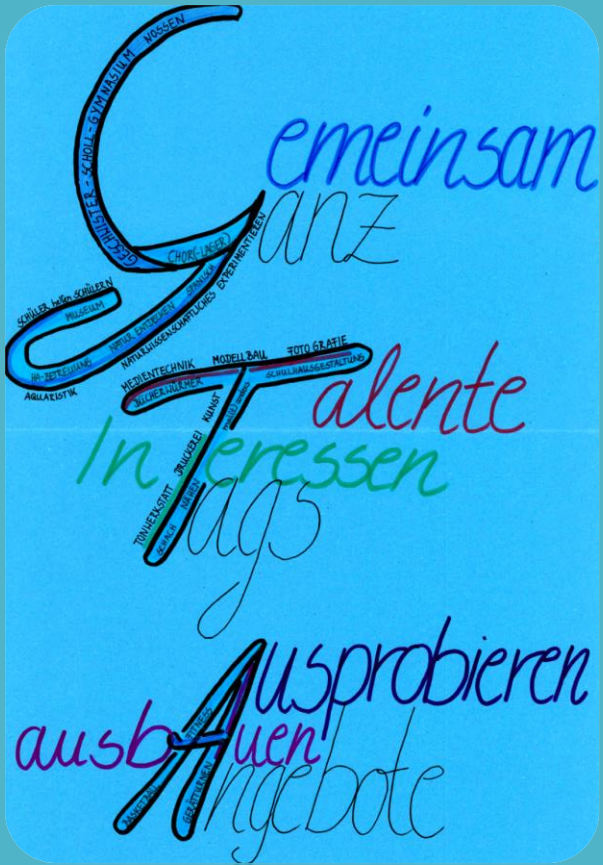 GESCHWISTER-SCHOLL-GYMNASIUM NOSSEN
Gemeinsam
Ganz
CHOR(-LAGER)
SCHÜLER helfen SCHÜLERN
MUSEUM
HA-BETREUUNG
NATUR ENTDECKEN
SPANISCH
NATURWISSENSCHAFTLICHES EXPERIMENTIEREN
AQUARISTIK
MEDIENTECHNIK
MODELLBAU
FOTOGRAFIE
BÜCHERWÜRMER
SCHULHAUSGESTALTUNG
Talente
InTeressen
Tags
TONWERKSTATT
DRUCKEREI
KUNST
SCHACH
NÄHEN
Ausprobieren
ausbAuen
Angebote
FITNESS
BASKETBALL
GERÄTTURNEN